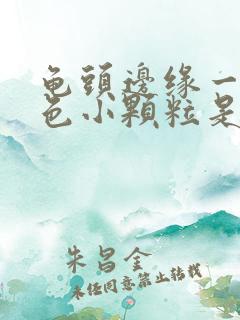 龟頭邊缘一
色小顆粒是
朱昌金
未任同意禁止转载